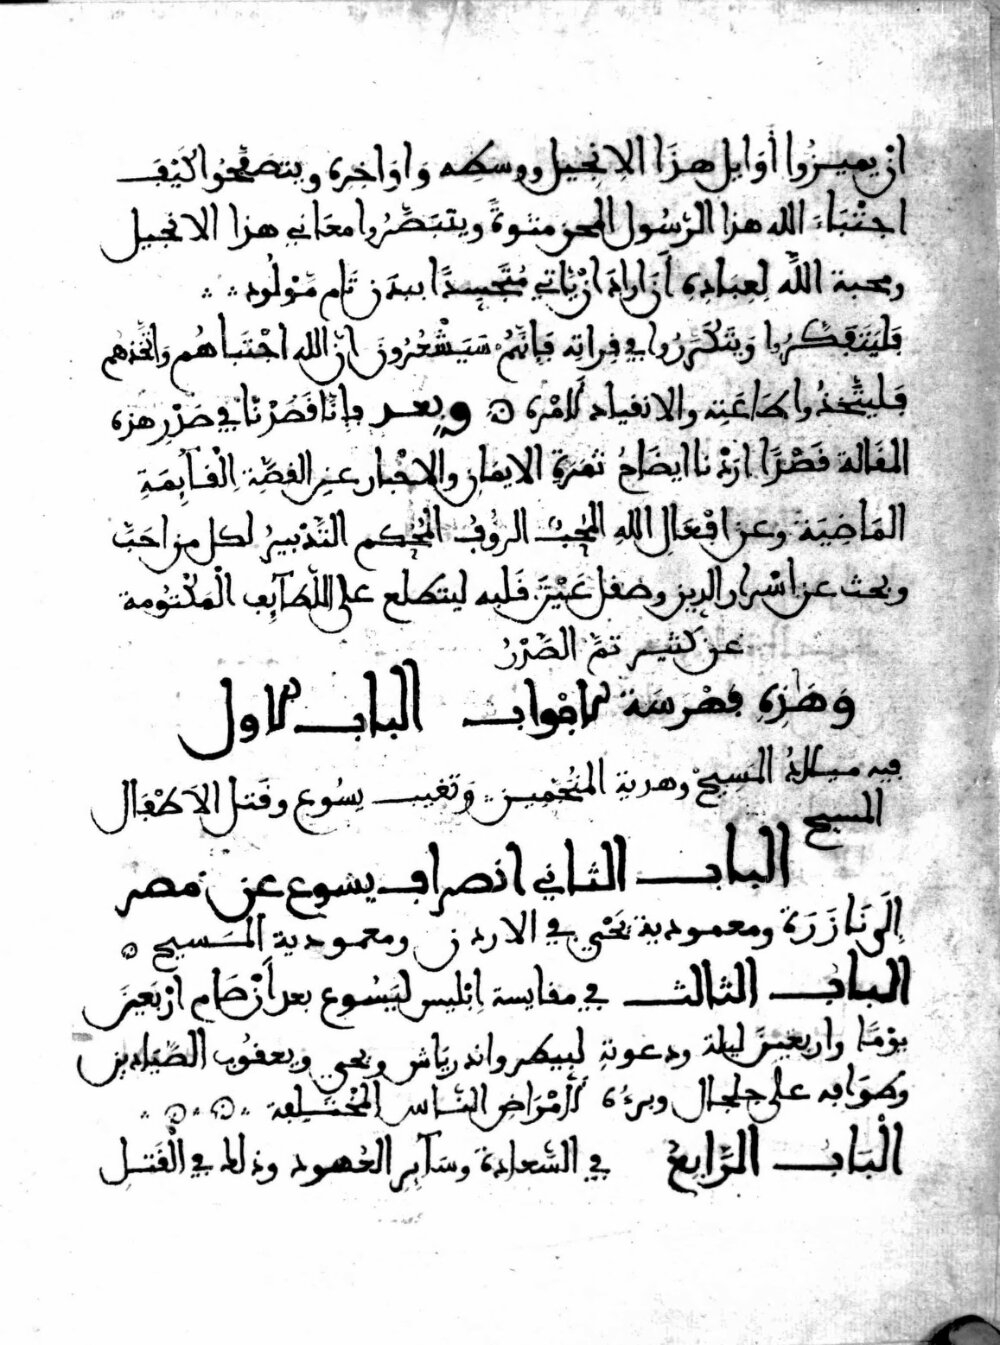 ان يميزوا أوايل هذا الانجيل ووسطه واواخره ويتصفحوا كيف
اجتباء الله هذا الرسول المحق متوة ويتبصروا معاني هذا الانجيل
ومحبة الله لعباده أن اراد ان ياتي متجسدا ببدن تام مولود
فليتفكروا ويتكرروا في قراته فانهم سيشعرون ان الله اجتباهم واتخذهم
فليتخذوا طاعته والانقياد لامره وبعد فانا قصرنا في صدر هذه
المقالة قصرا اردنا ايضاح ثمرة الايمان والاخبار عن القصة القايمة
الماضية وعن افعال الله المحب الروف المحكم التدبير لكل من احب
وبحث عن اسرار الدين وصقل عين قلبه ليتطلع على اللطايف المكتومة
عن كثير تم الصدر
وهذه فهرسة الابواب الباب الاول
فيه ميلاد المسيح وهدية المنجمين وتغيب يسوع وقتل الاطفال
المسيح
الباب الثاني انصراف يسوع عن مصر
إلى نازرة ومعمودية يحيى في الاردن ومعمودية المسيح
الباب الثالث في مقايسة ابليس ليسوع بعد أن صام اربعين
يوما واربعين ليلة ودعوته لبيطر واندرياش ويحيى ويعقوب الصيادين
وطوافه على جلجال وبرءه لأمراض الناس المختلفة
الباب الرابع في السعادة وساير العهود وذلك في القتل